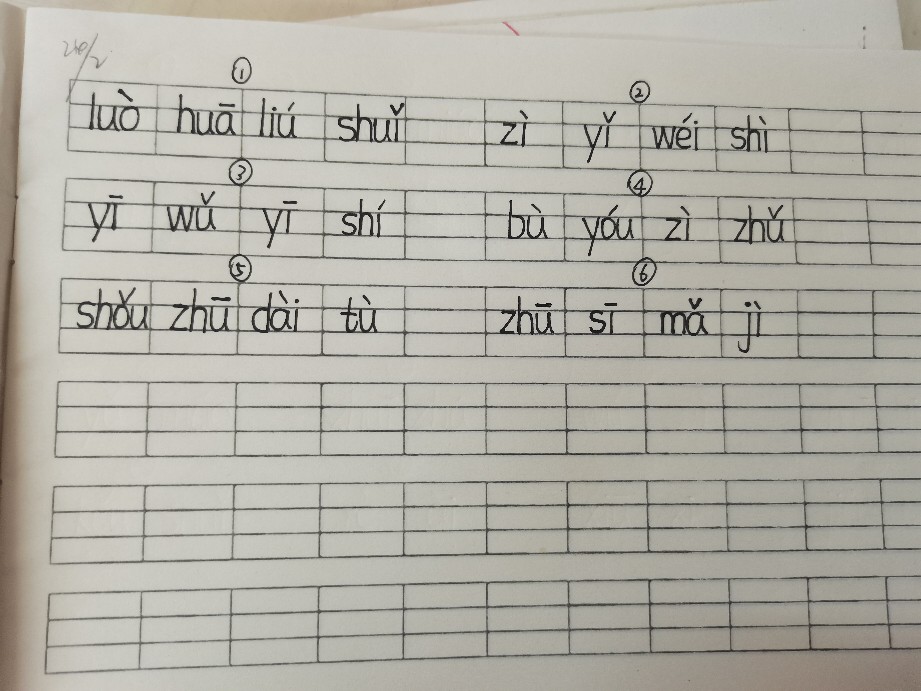 ① ②
luò huā liú shuǐ zì yǐ wéi shì
③ ④
yī wǔ yī shí bù yóu zì zhǔ
⑤ ⑥
shǒu zhū dài tù zhū sī mǎ jì